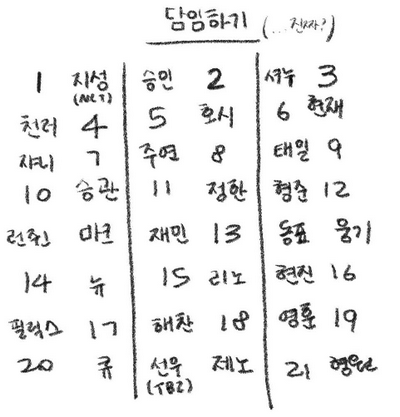 담임하기 (...진짜?)
1 지성 승민 2 셔누 3
(NCT)
천러 4 5 호시 6 현재
쟈니 7 주연 8 태일 9
10 승관 11 정한 형준 12
런쥔 마크 재민 13 동표 웅기
14 뉴 15 리노 현진 16
필릭스 17 해찬 18 영훈 19
20 큐 선우 제노 21 형원
(TBZ)